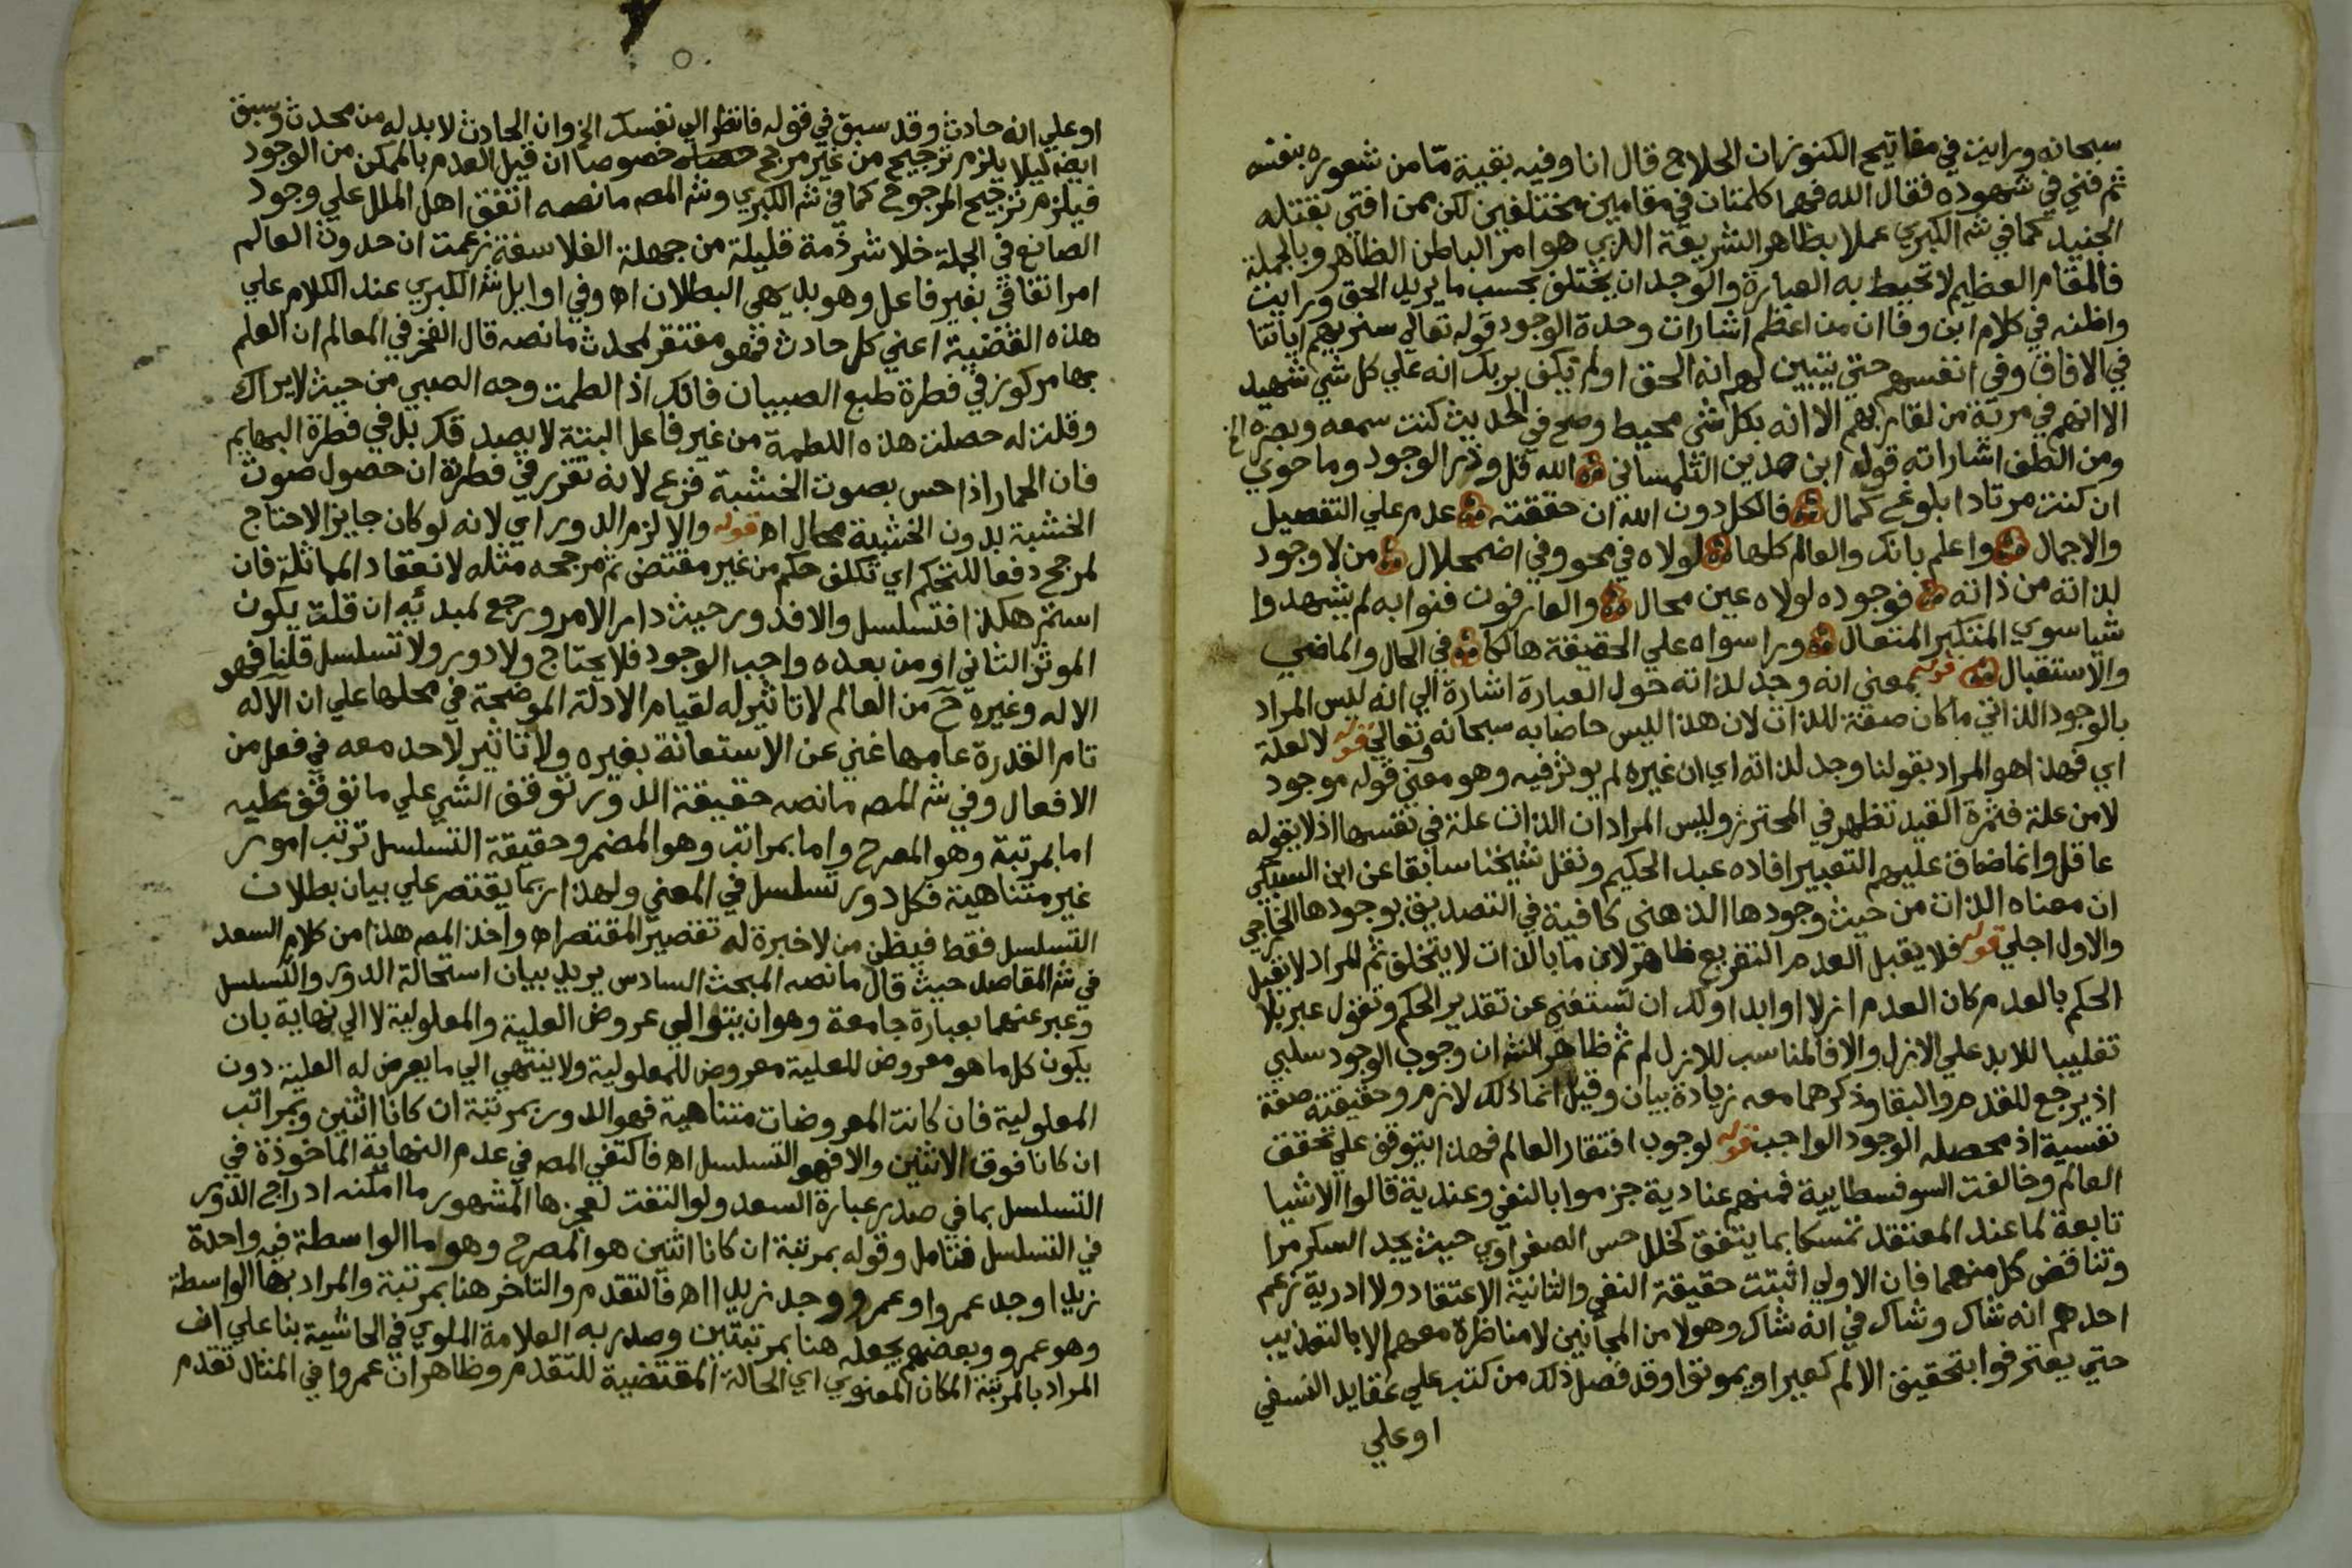 سبحانه ورايت في مفاتيح الكنوز ان الحلاج قال انا وفيه بقية مّا من شعوره بنفسه
ثم فني في شهوده فقال الله فهما كلمتان في مقامين مختلفين لكن ممن افتي بقتله
الجنيد كما في شم الكبري عملا بظاهر الشريعة الذي هو امر الباطن الظاهر وبالجملة
فالمقام العظيم لا تحيط به العبارة والوجد ان يختلف بحسب ما يريد الحق ورايت
واظنه في كلام ابن وفا ان من اعظم اشارات وحدة الوجود قوله تعالي سنريهم اياتنا
في الافاق وفي انفسهم حتي يتبين لهم انه الحق اولم يكف بربك انه علي كل شي شهيد
الا انهم في مرية من لقا ربهم الا انه بكل شي محيط وصح في الحديث كنت سمعه وبصره الخ
ومن الطف اشاراته قوله ابن مدين التلمساني الله قل وذر الوجود وما حوي
ان كنت مرتادا بلوغ كمال فالكل دون الله ان حققته عدم علي التفصيل
والاجمال واعلم بانك والعالم كلها لولاه في محو وفي اضمحلال من لا وجود
لذاته من ذاته فوجوده لولاه عين محال والعارفون فنوا به لم يشهدوا
شيا سوي المتكبر المتعال وراسواه علي الحقيقة هالكا في الحال والماضي
والاستقبال قوله بمعني انه وجد لذاته حول العبارة اشارة الي انه ليس المراد
بالوجود الذاتي ما كان صفة للذات لان هذا ليس خاصا به سبحانه وتعالي قوله لا لعلة
اي فهذا هو المراد بقولنا وجد لذاته اي ان غيره لم يوثر فيه وهو معني قوله موجود
لا من علة فثمرة القيد تظهر في المحترز وليس المراد ان الذات علة في نفسها اذ لا يقوله
عاقل وانما ضاق عليهم التعبير افاده عبد الحكيم ونقل شيخنا سابقا عن ابن السبكي
ان معناه الذات من حيث وجودها الذهني كافية في التصديق بوجودها الخارجي
والاول اجلي قوله فلا يقبل العدم التفريع ظاهر لان ما بالذات لا يتخلف ثم المراد لا يقبل
الحكم بالعدم كان العدم ازلا او ابدا ولك ان تستغني عن تقدير الحكم وتقول عبر بلا
تغليبا للابد علي الازل والا فالمناسب للازل لم ثم ظاهر الشم ان وجوب الوجود سلبي
اذ يرجع للقدم والبقا وذكرهما معه زيادة بيان وقيل انما ذلك لازم وحقيقته صفة
نفسية اذ محصله الوجود الواجب قوله لوجوب افتقار العالم فهذا يتوقف علي تحقق
العالم وخالفت السوفسطايية فمنهم عنادية جزموا بالنفي وعندية قالوا الاشيا
تابعة لما عند المعتقد تمسكا بما يتفق كخلل حس الصفراوي حيث يجد السكر مرا
وتناقض كل منهما فان الاولي اثبتت حقيقة النفي والثانية الاعتقاد ولا ادرية زعم
احدهم انه شاك وشاك في انه شاك وهولا من المجانين لا مناظرة معهم الا بالتعذيب
حتي يعترفوا بتحقيق الالم كغيرا ويموتوا وقد فصل ذلك من كتب علي عقايد النسفي
او علي
او علي انه حادث وقد سبق في قوله فانظر الي نفسك الخ وان الحادث لا بد له من محدث وسبق
ايضه ليلا يلزم ترجيح من غير مرجح خصوصا ان قيل العدم بالممكن من الوجود
فيلزم ترجيح المرجوح كما في شم الكبري وشم المصه ما نصه اتفق اهل الملل علي وجود
الصانع في الجملة خلا شرذمة قليلة من جهلة الفلاسفة زعمت ان حدوث العالم
امر اتفاقي بغير فاعل وهو بديهي البطلان اه وفي اوايل شم الكبري عند الكلام علي
هذه القضية اعني كل حادث فهو مفتقر لمحدث ما نصه قال الفخر في المعالم ان العلم
بها مركوز في فطرة طبع الصبيان فانك اذا لطمت وجه الصبي من حيث لا يراك
وقلت له حصلت هذه اللطمة من غير فاعل البتة لا يصدقك بل في فطرة البهايم
فان الحمار اذا حس بصوت الخشبة فزع لانه تقرر في فطرته ان حصول صوت
الخشبة بدون الخشبة محال اه قوله والا لزم الدور اي لانه لو كان جايزا لاحتاج
لمرجح دفعا للتحكم اي تكلف حكم من غير مقتض ثم مرجحه مثله لانعقاد المماثلة فان
استمر هكذا فتسلسل والا فدور حيث دام الامر ورجع لمبدئه ان قلت يكون
الموثر الثاني او من بعده واجب الوجود فلا يحتاج ولا دور ولا تسلسل قلنا فهو
الاله وغيره ح من العالم لا تاثير له لقيام الادلة الموضحة في محلها علي ان الاله
تام القدرة عامها غني عن الاستعانة بغيره ولا تاثير لاحد معه في فعل من
الافعال وفي شم المصه ما نصه حقيقة الدور توقف الشي علي ما توقف عليه
اما بمرتبة وهو المصرح واما بمراتب وهو المضمر وحقيقة التسلسل ترتب امور
غير متناهية فكل دور تسلسل في المعني ولهذا ربما يقتصر علي بيان بطلان
التسلسل فقط فيظن من لا خبرة له تقصير المقتصر اه واخذ المصه هذا من كلام السعد
في شم المقاصد حيث قال ما نصه المبحث السادس يريد بيان استحالة الدور والتسلسل
وعبر عنهما بعبارة جامعة وهو ان يتوالي عروض العلية والمعلولية لا الي نهاية بان
يكون كل ما هو معروض للعلية معروض للمعلولية ولا ينتهي الي ما يعرض له العلية دون
المعلولية فان كانت المعروضات متناهية فهو الدور بمرتبة ان كانا اثنين وبمراتب
ان كانا فوق الاثنين والا فهو التسلسل اه فاكتفي المصه في عدم النهاية الماخوذة في
التسلسل بما في صدر عبارة السعد ولو التفت لعجزها المشهور ما امكنه ادراج الدور
في التسلسل فتامل وقوله بمرتبة ان كانا اثنين هو المصرح وهو اما الواسطة فيه واحدة
زيد اوجد عمروا وعمرو وجد زيدا اه فالتقدم والتاخر هنا بمرتبة والمراد بها الواسطة
وهو عمرو وبعضهم يجعله هنا بمرتبتين وصدر به العلامة الملوي في الحاشية بنا علي ان
المراد بالمرتبة المكان المعنوي اي الحالة المقتضية للتقدم وظاهر ان عمروا في المثال تقدم